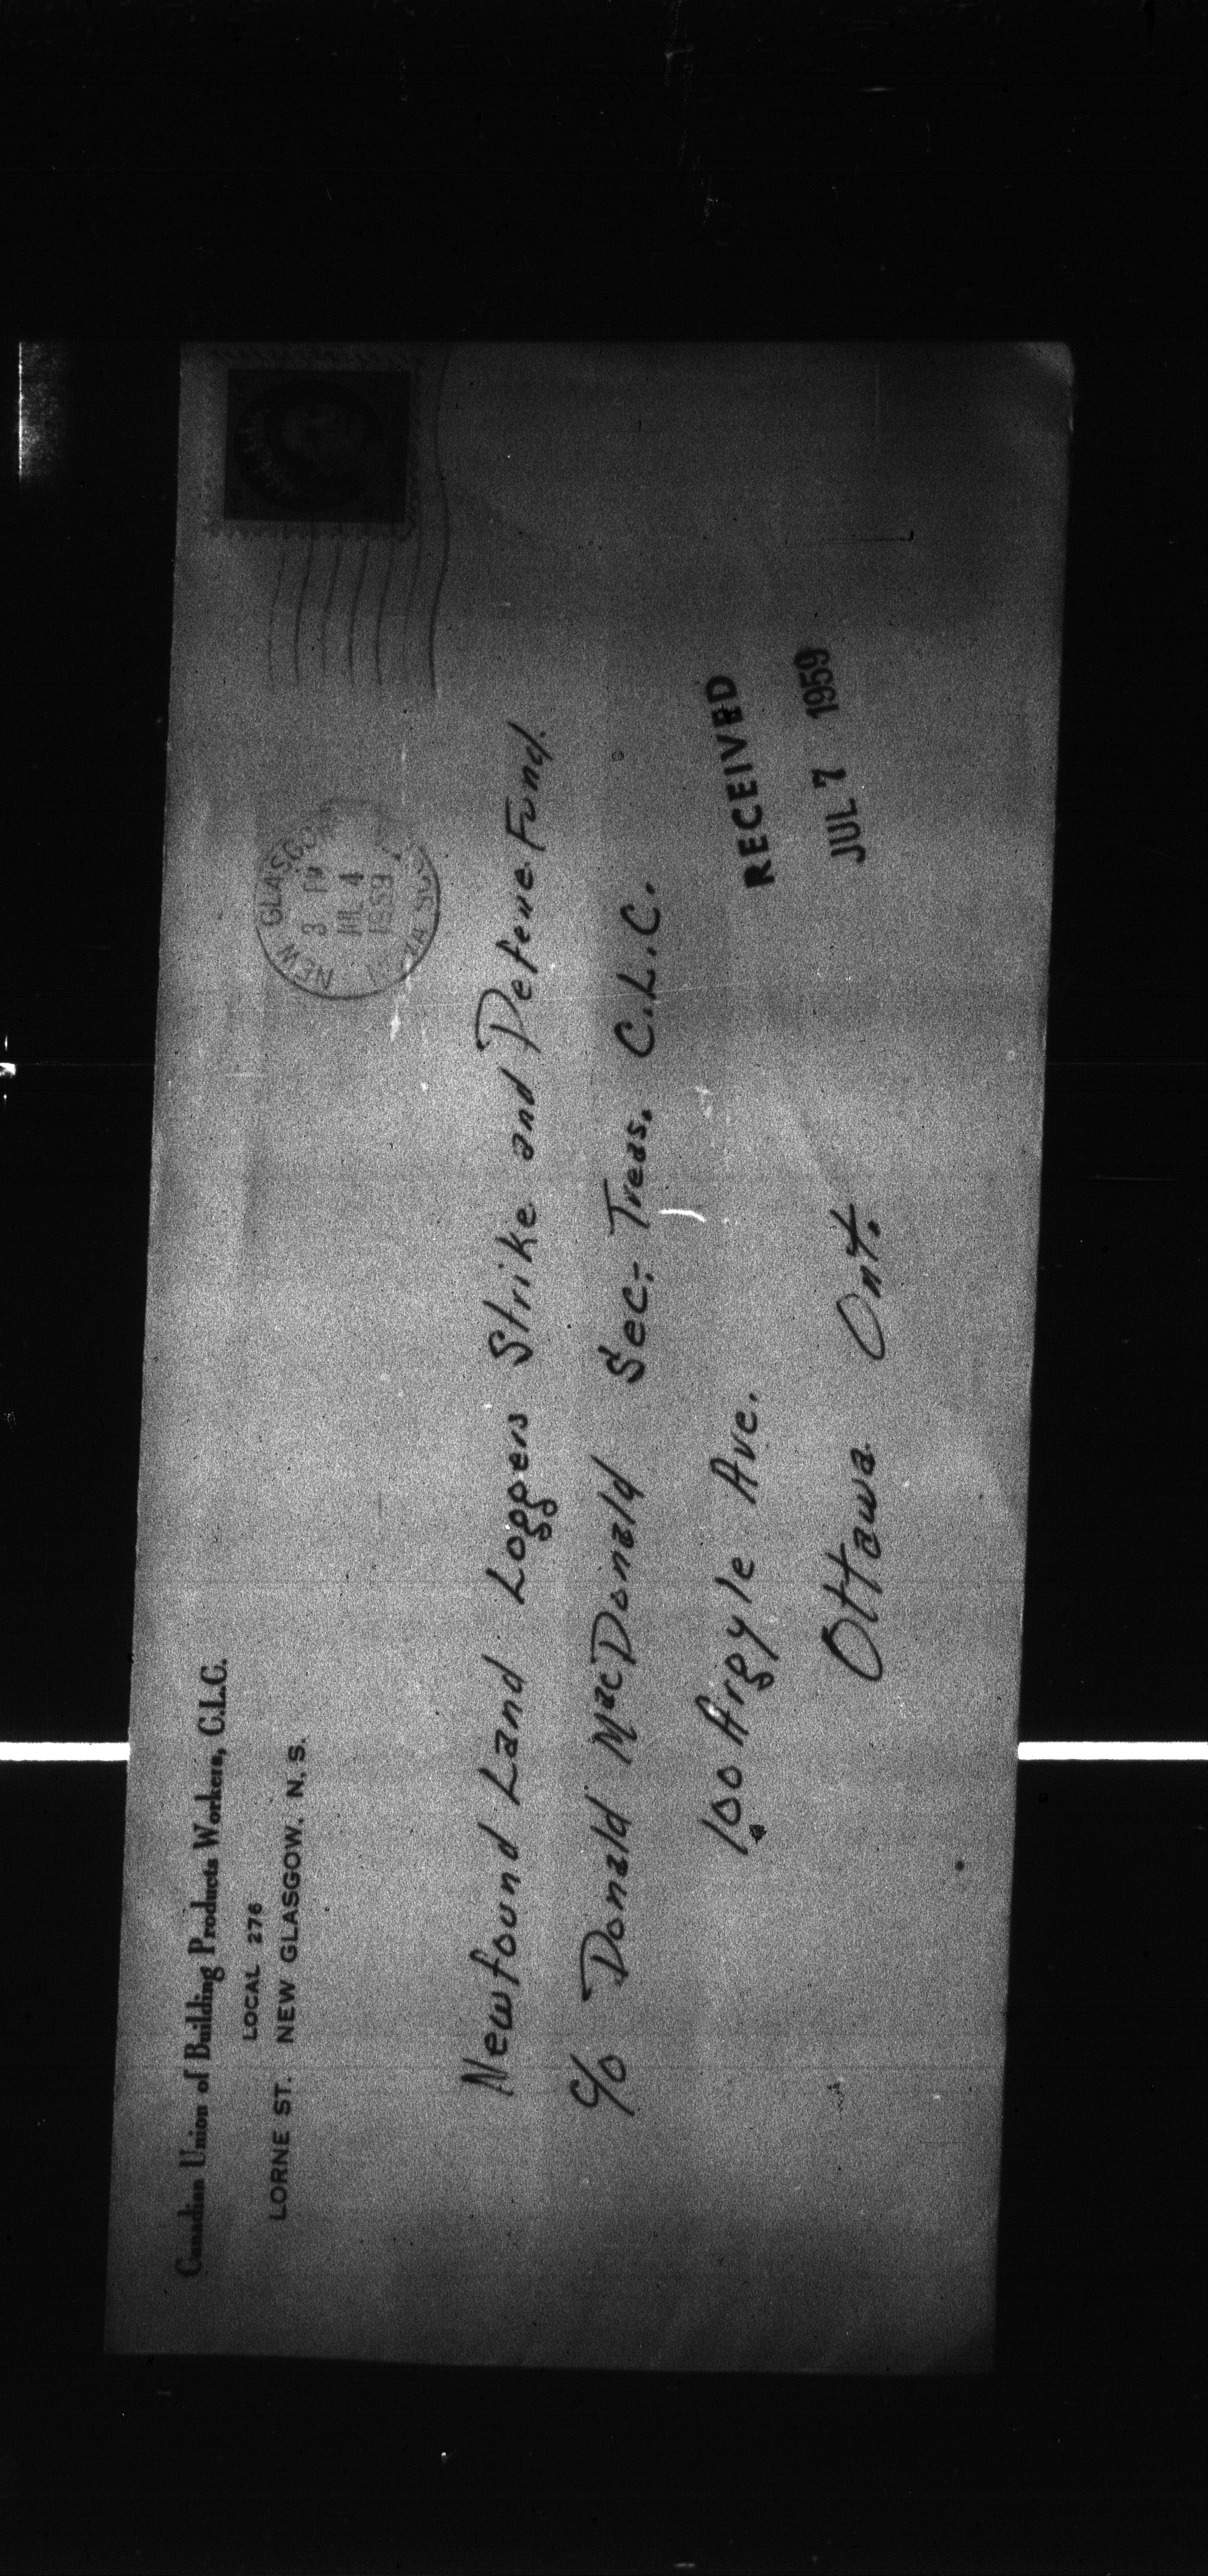 Canadian Union of Building Products Workers, C.L.C.
LOCAL 276
LORNE ST. NEW GLASGOW. N.S.
NEW GLASGOW
3 PM
JUL 4
1959
Newfound Land Loggers Strike and Defene Fund.
c/o Donald MacDonald Sec.- Treas. C.L.C.
100 Argyle Ave.
Ottawa Ont.
RECEIVED
JUL 7 1959